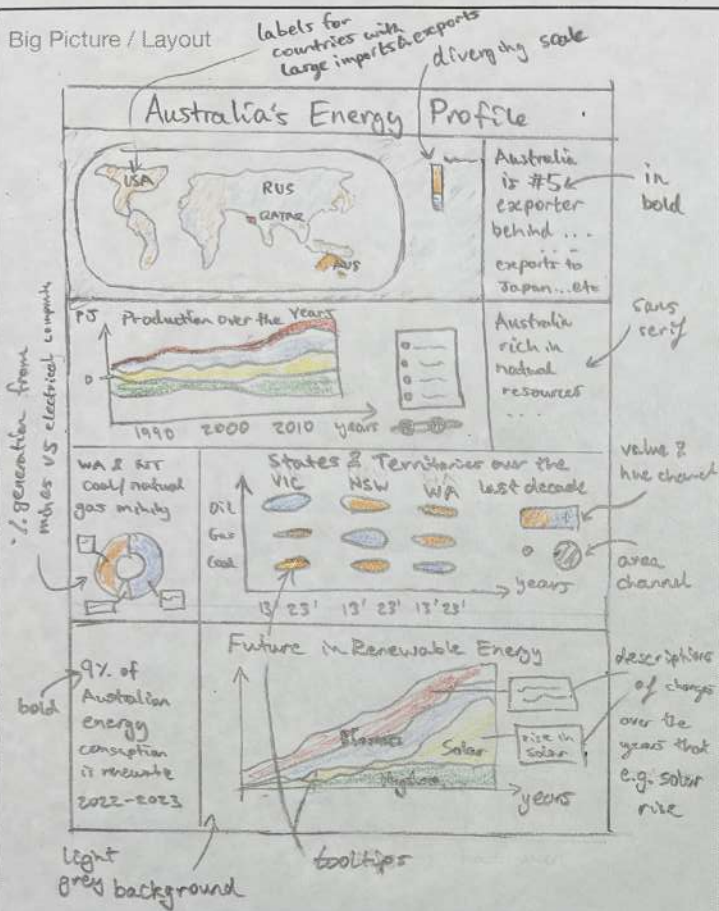 Big Picture / Layout
labels for
countries with
large imports & exports
diverging scale
Australia's Energy Profile
USA
RUS
QATAR
AUS
Australia
is #5
exporter
behind ...
...
exports to
Japan...etc
in
bold
PJ
Production over the Years
0
1990 2000 2010 years
Australia
rich in
natural
resources
...
sans
serif
% generation from
mines vs electrical
WA & NT
coal/natural
gas mining
States & Territories over the
last decade
VIC NSW WA
Oil
Gas
Coal
years
13' 23' 13' 23' 13' 23'
value &
hue channel
area
channel
bold
9% of
Australian
energy
consuption
is renewate
2022-2023
Future in Renewable Energy
Biomass
Solar
Hydro
rise in
solar
years
descriptions
of changes
over the
years that
e.g. solar
rise
light
grey background
tooltips